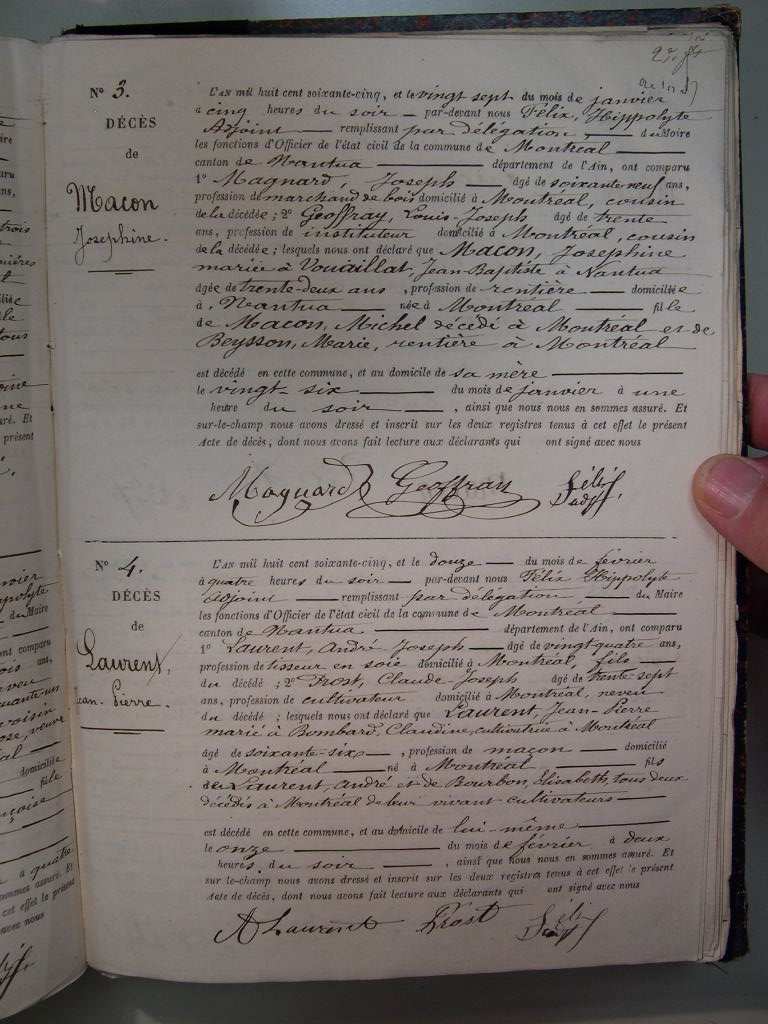 N° 3.
DÉCÈS
de
Macon
Josephine.
L'AN mil huit cent soixante-cinq, et le vingt sept du mois de janvier
à cinq heures du soir — par-devant nous Félix, Hippolyte
Adjoint — remplissant par délégation, — du Maire
les fonctions d'Officier de l'état civil de la commune de Montréal —
canton de Nantua — département de l'Ain, ont comparu
1° Magnard, Joseph — âgé de soixante-neuf ans,
profession de marchand de bois domicilié à Montréal, cousin
de la décédée ; 2° Geoffray, Louis-Joseph âgé de trente
ans, profession de instituteur domicilié à Montréal, cousin
de la décédée ; lesquels nous ont déclaré que Macon, Josephine
mariée à Vouaillat, Jean-Baptiste à Nantua
âgée de trente-deux ans, profession de rentière — domiciliée
à Nantua — née à Montréal — fille
de Macon, Michel décédé à Montréal et de
Beysson, Marie, rentière à Montréal
est décédé en cette commune, et au domicile de sa mère —
le vingt-six — du mois de janvier à une
heure du soir —, ainsi que nous nous en sommes assuré. Et
sur-le-champ nous avons dressé et inscrit sur les deux registres tenus à cet effet le présent
Acte de décès, dont nous avons fait lecture aux déclarants qui ont signé avec nous
Magnard Geoffray Félix
N° 4.
DÉCÈS
de
Laurent,
Jean-Pierre.
L'AN mil huit cent soixante-cinq, et le douze — du mois de février
à quatre heures du soir — par-devant nous Félix Hippolyte
adjoint — remplissant par délégation, — du Maire
les fonctions d'Officier de l'état civil de la commune de Montréal —
canton de Nantua — département de l'Ain, ont comparu
1° Laurent, André Joseph — âgé de vingt quatre ans,
profession de tisseur en soie domicilié à Montréal, fils —
du décédé ; 2° Prost, Claude-Joseph âgé de trente sept
ans, profession de cultivateur domicilié à Montréal, neveu
du décédé ; lesquels nous ont déclaré que Laurent, Jean-Pierre
marié à Bombard, Claudine, cultivatrice à Montréal
âgé de soixante-six —, profession de maçon — domicilié
à Montréal — né à Montréal — fils
de Laurent, André et de Bourbon, Elisabeth, tous deux
décédés à Montréal de leur vivant cultivateurs —
est décédé en cette commune, et au domicile de lui-même —
le onze — du mois de février à deux
heures du soir —, ainsi que nous nous en sommes assuré. Et
sur-le-champ nous avons dressé et inscrit sur les deux registres tenus à cet effet le présent
Acte de décès, dont nous avons fait lecture aux déclarants qui ont signé avec nous
A Laurent Prost Félix